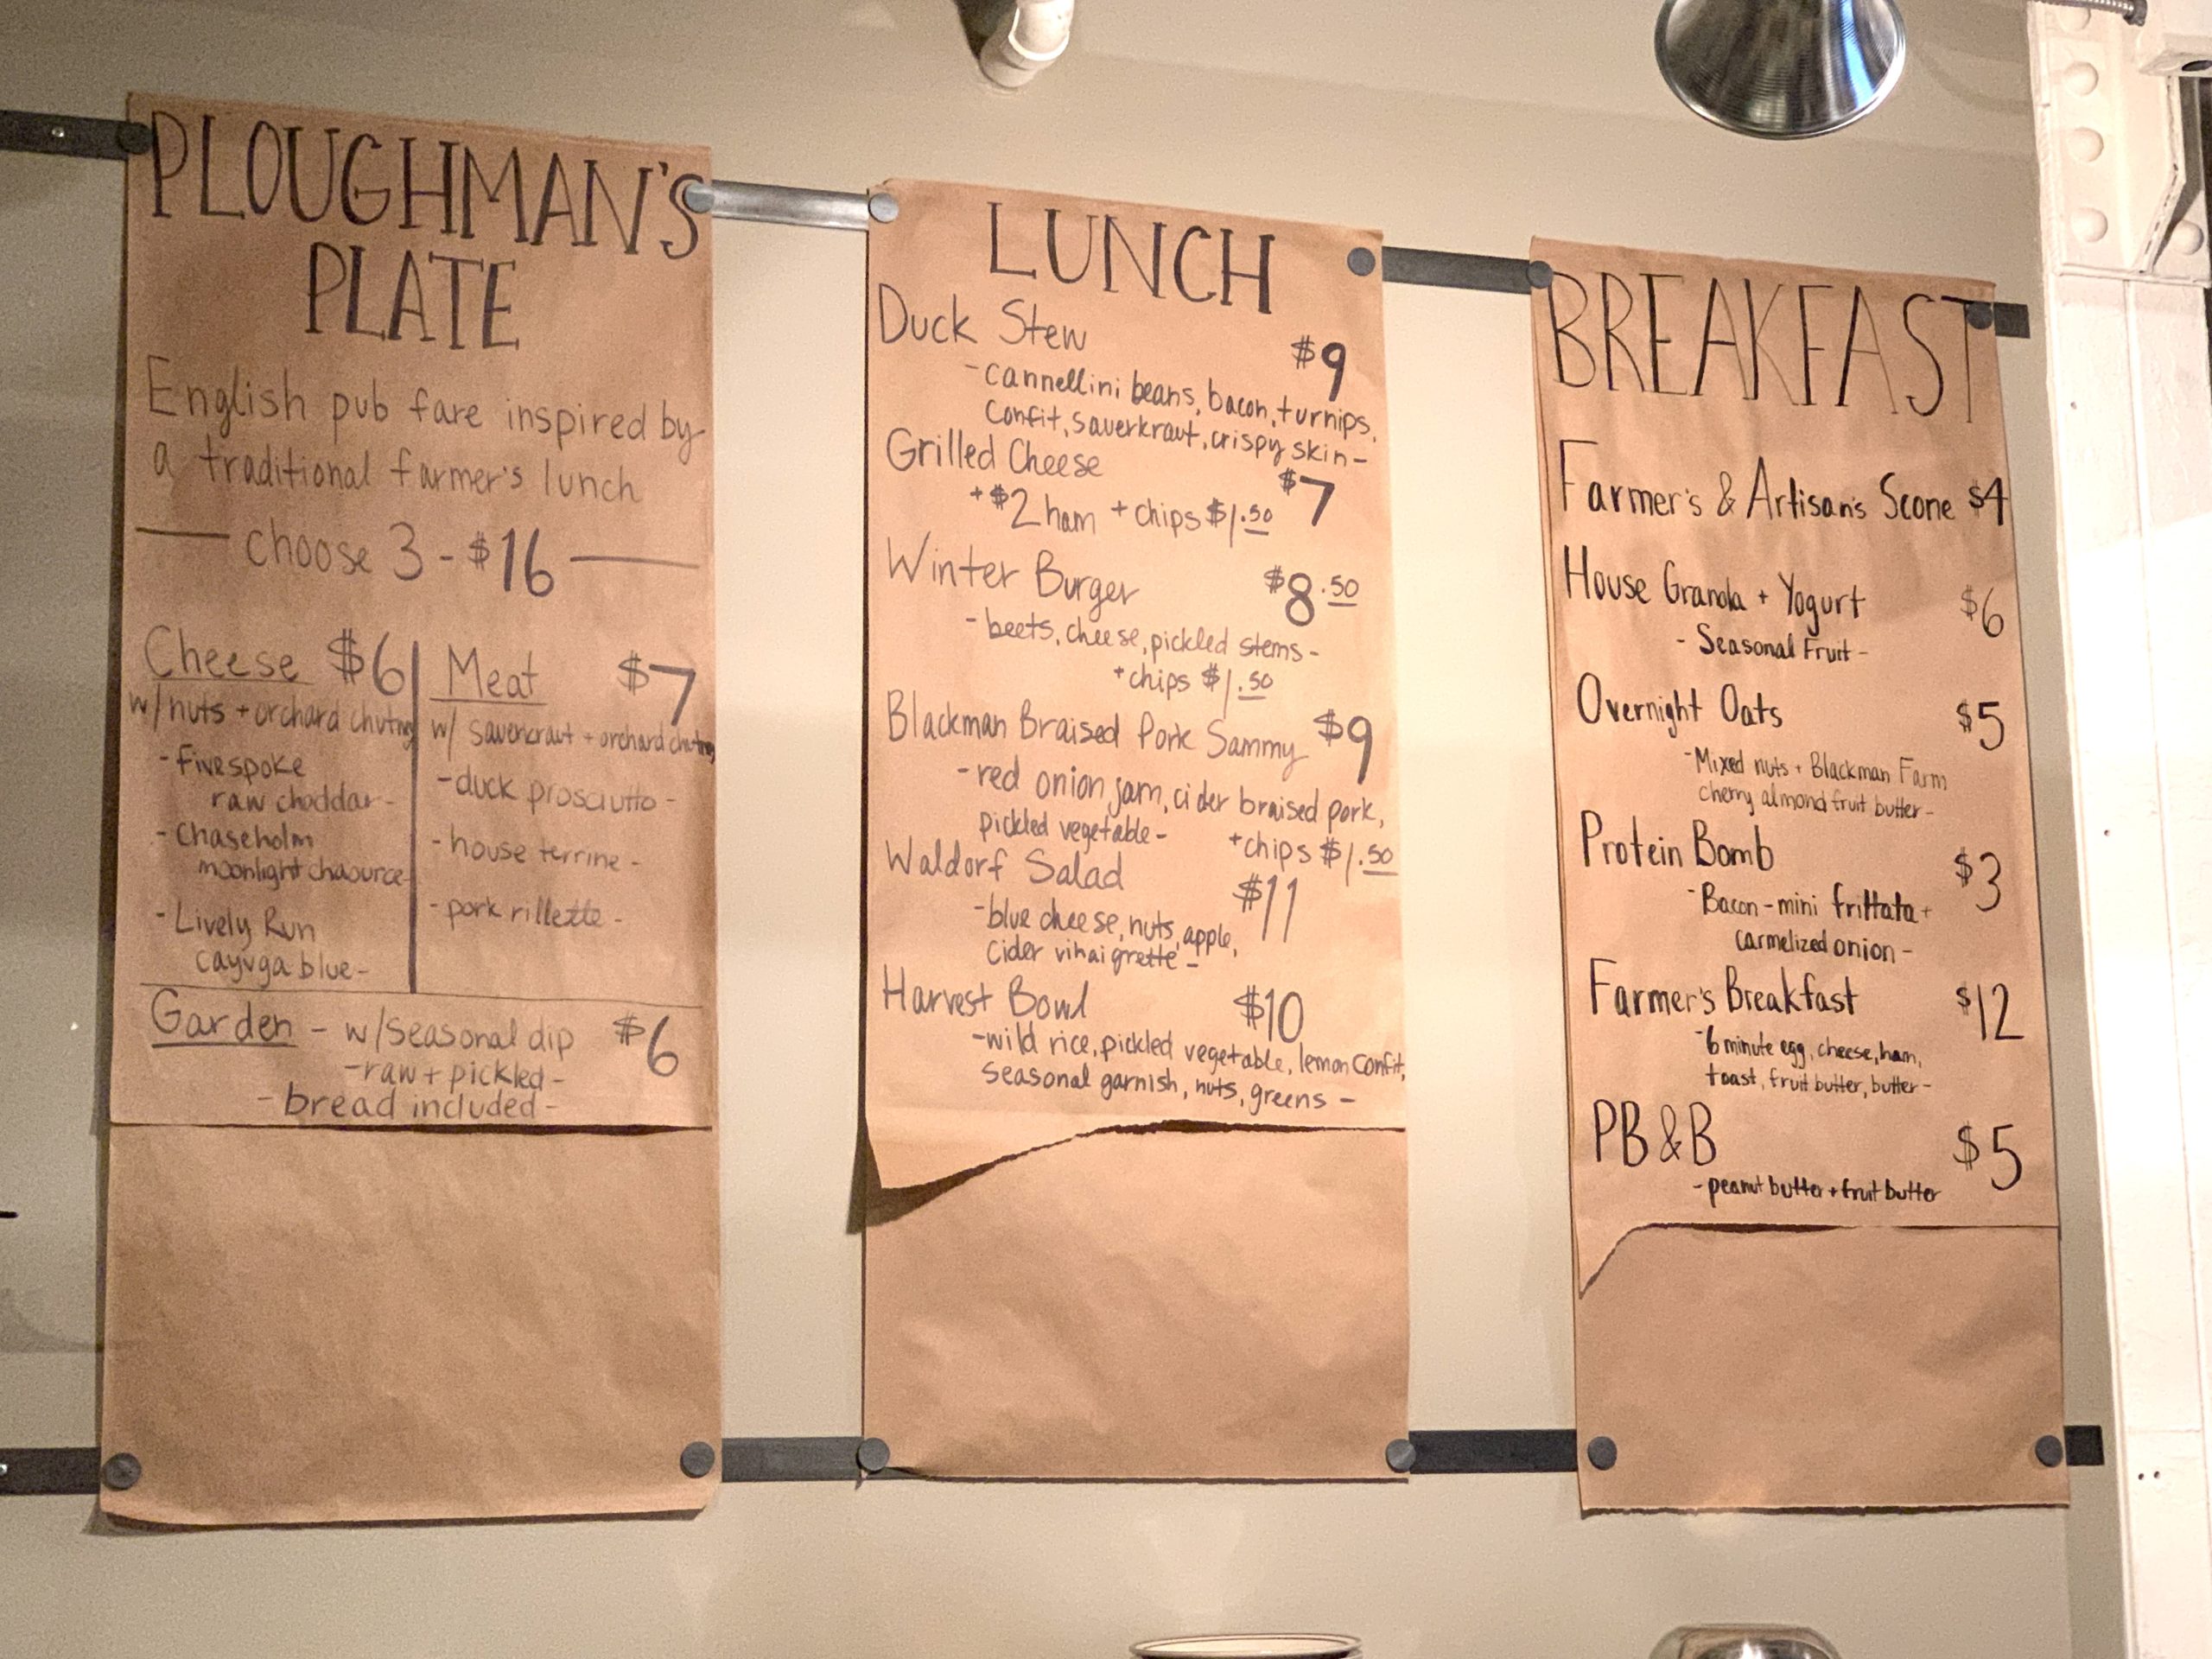 PLOUGHMAN'S
PLATE
English pub fare inspired by
a traditional farmer's lunch
choose 3 - $16
Cheese $6
w/nuts + orchard chutney
- fivespoke
raw cheddar -
- Chaseholm
moonlight chaource
- Lively Run
cayuga blue -
Meat $7
w/ sauerkraut + orchard chutney
- duck prosciutto -
- house terrine -
- pork rillette -
Garden - w/seasonal dip $6
- raw + pickled -
- bread included -
LUNCH
Duck Stew $9
- cannellini beans, bacon, turnips,
confit, sauerkraut, crispy skin -
Grilled Cheese $7
+ $2 ham + chips $1.50
Winter Burger $8.50
- beets, cheese, pickled stems -
+ chips $1.50
Blackman Braised Pork Sammy $9
- red onion jam, cider braised pork,
pickled vegetable - + chips $1.50
Waldorf Salad $11
- blue cheese, nuts, apple,
cider vinaigrette -
Harvest Bowl $10
- wild rice, pickled vegetable, lemon confit,
seasonal garnish, nuts, greens -
BREAKFAST
Farmer's & Artisan's Scone $4
House Granola + Yogurt $6
- Seasonal Fruit -
Overnight Oats $5
- Mixed nuts + Blackman Farm
cherry almond fruit butter -
Protein Bomb $3
- Bacon - mini frittata +
carmelized onion -
Farmer's Breakfast $12
- 6 minute egg, cheese, ham,
toast, fruit butter, butter -
PB & B $5
- peanut butter + fruit butter